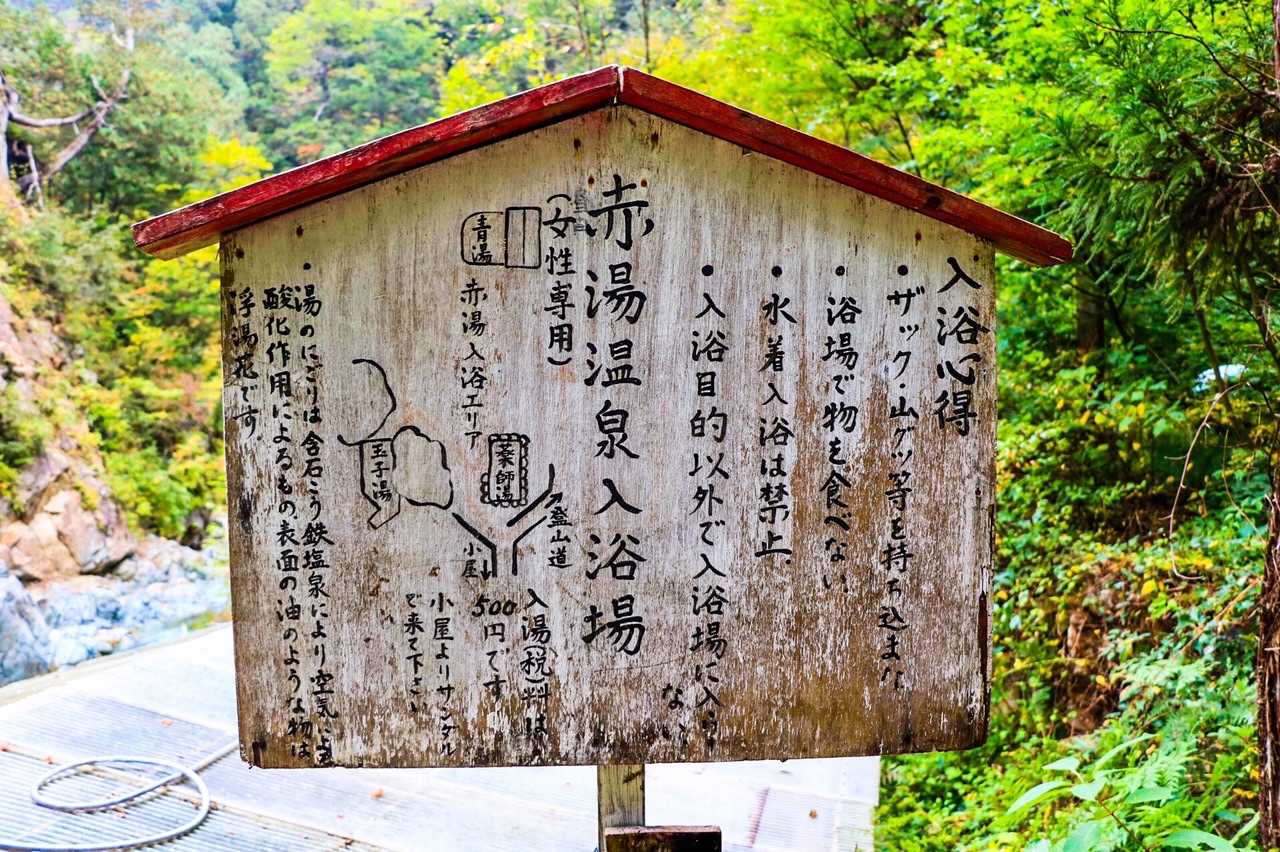 入浴心得
・ザック・山グツ等を持ち込まな
・浴場で物を食べない
・水着入浴は禁止
・入浴目的以外で入浴場に入ら
ない
赤湯温泉入浴場
(女性専用)
青湯
赤湯入浴エリア
薬師湯
玉子湯
登山道
小屋
入湯(税)料は
500円です
小屋よりサンダル
で来て下さい
・湯のにごりは含石こう鉄塩泉により空気による
酸化作用によるもの表面の油のような物は
浮湯花です。